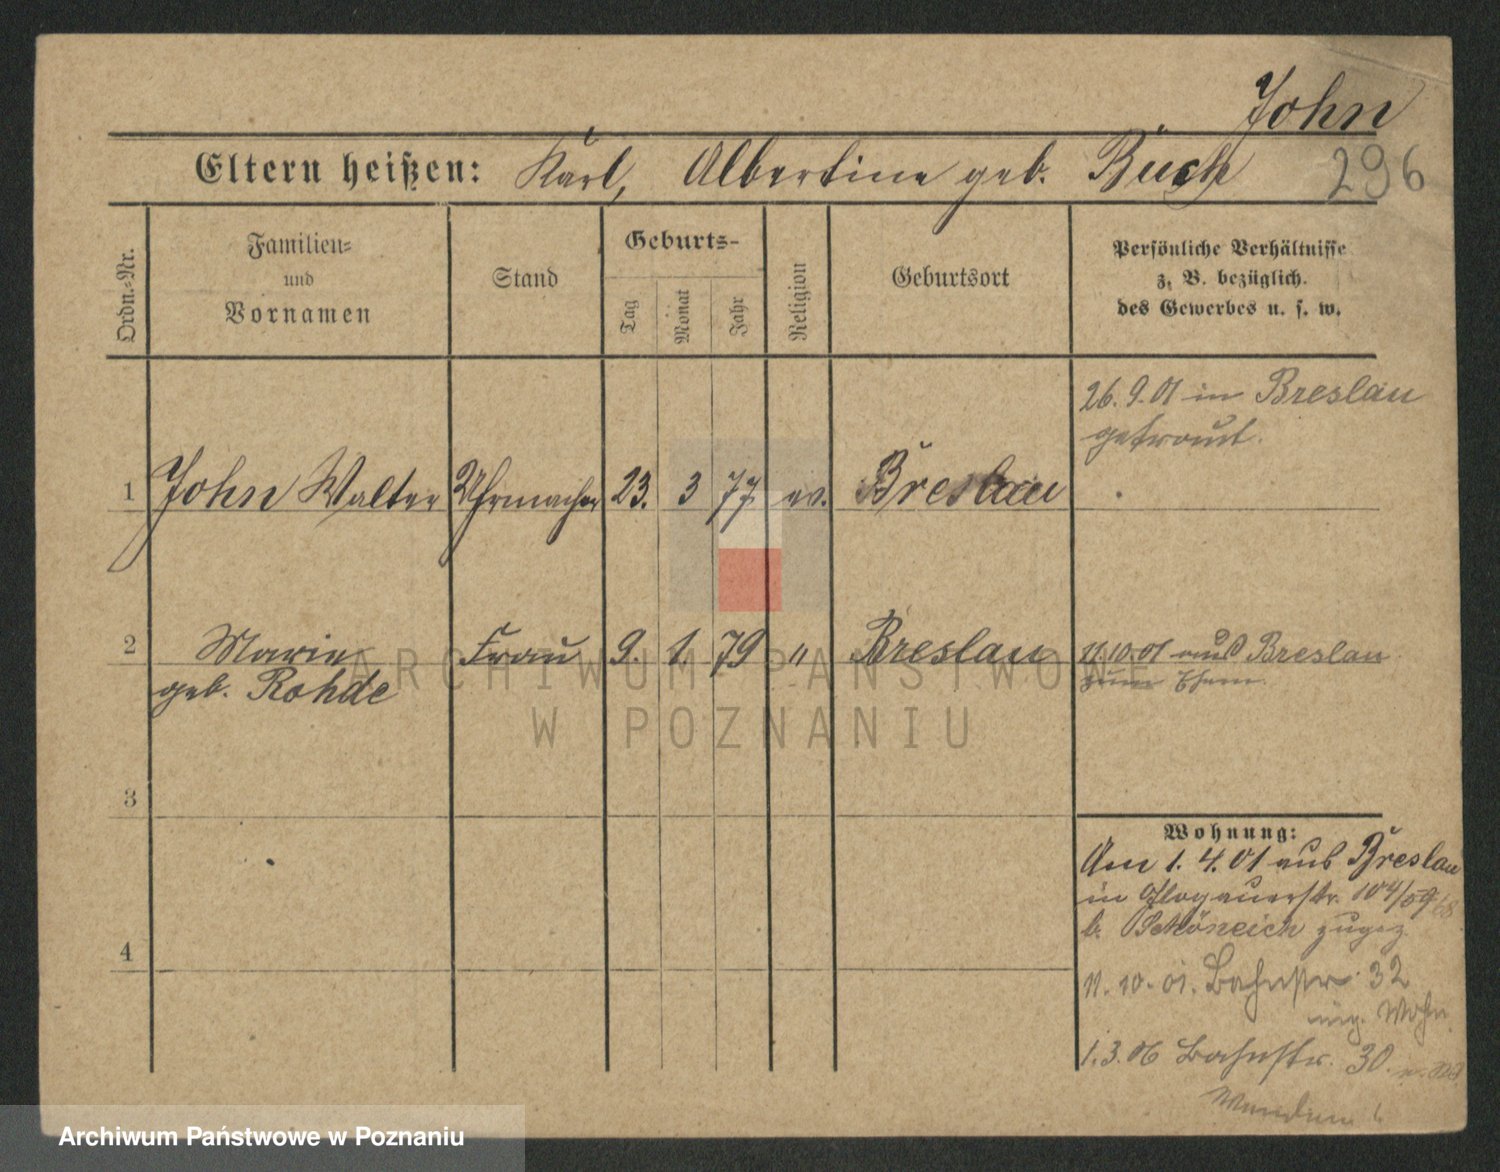 John
Eltern heißen: Karl, Albertine geb. Buch 296
Ordn.-Nr.
Familien- und Vornamen
Stand
Geburts-
Tag
Monat
Jahr
Religion
Geburtsort
Persönliche Verhältnisse
z. B. bezüglich.
des Gewerbes u. s. w.
26. 9. 01 in Breslau
getraut.
1 John Walter Uhrmacher 23. 3 77 ev. Breslau
2 Marie Frau 9. 1. 79 " Breslau 11.10.01 aus Breslau
geb. Rohde zum Ehem.
3
Wohnung:
Am 1. 4. 01 aus Breslau
in Glogauerstr. 104/59
b. Schöneich zugez.
4
11. 10. 01. Bahnstr. 32
eig. Wohn.
1. 3. 06 Bahnstr. 30.
ARCHIWUM PAŃSTWOWE
W POZNANIU
Archiwum Państwowe w Poznaniu